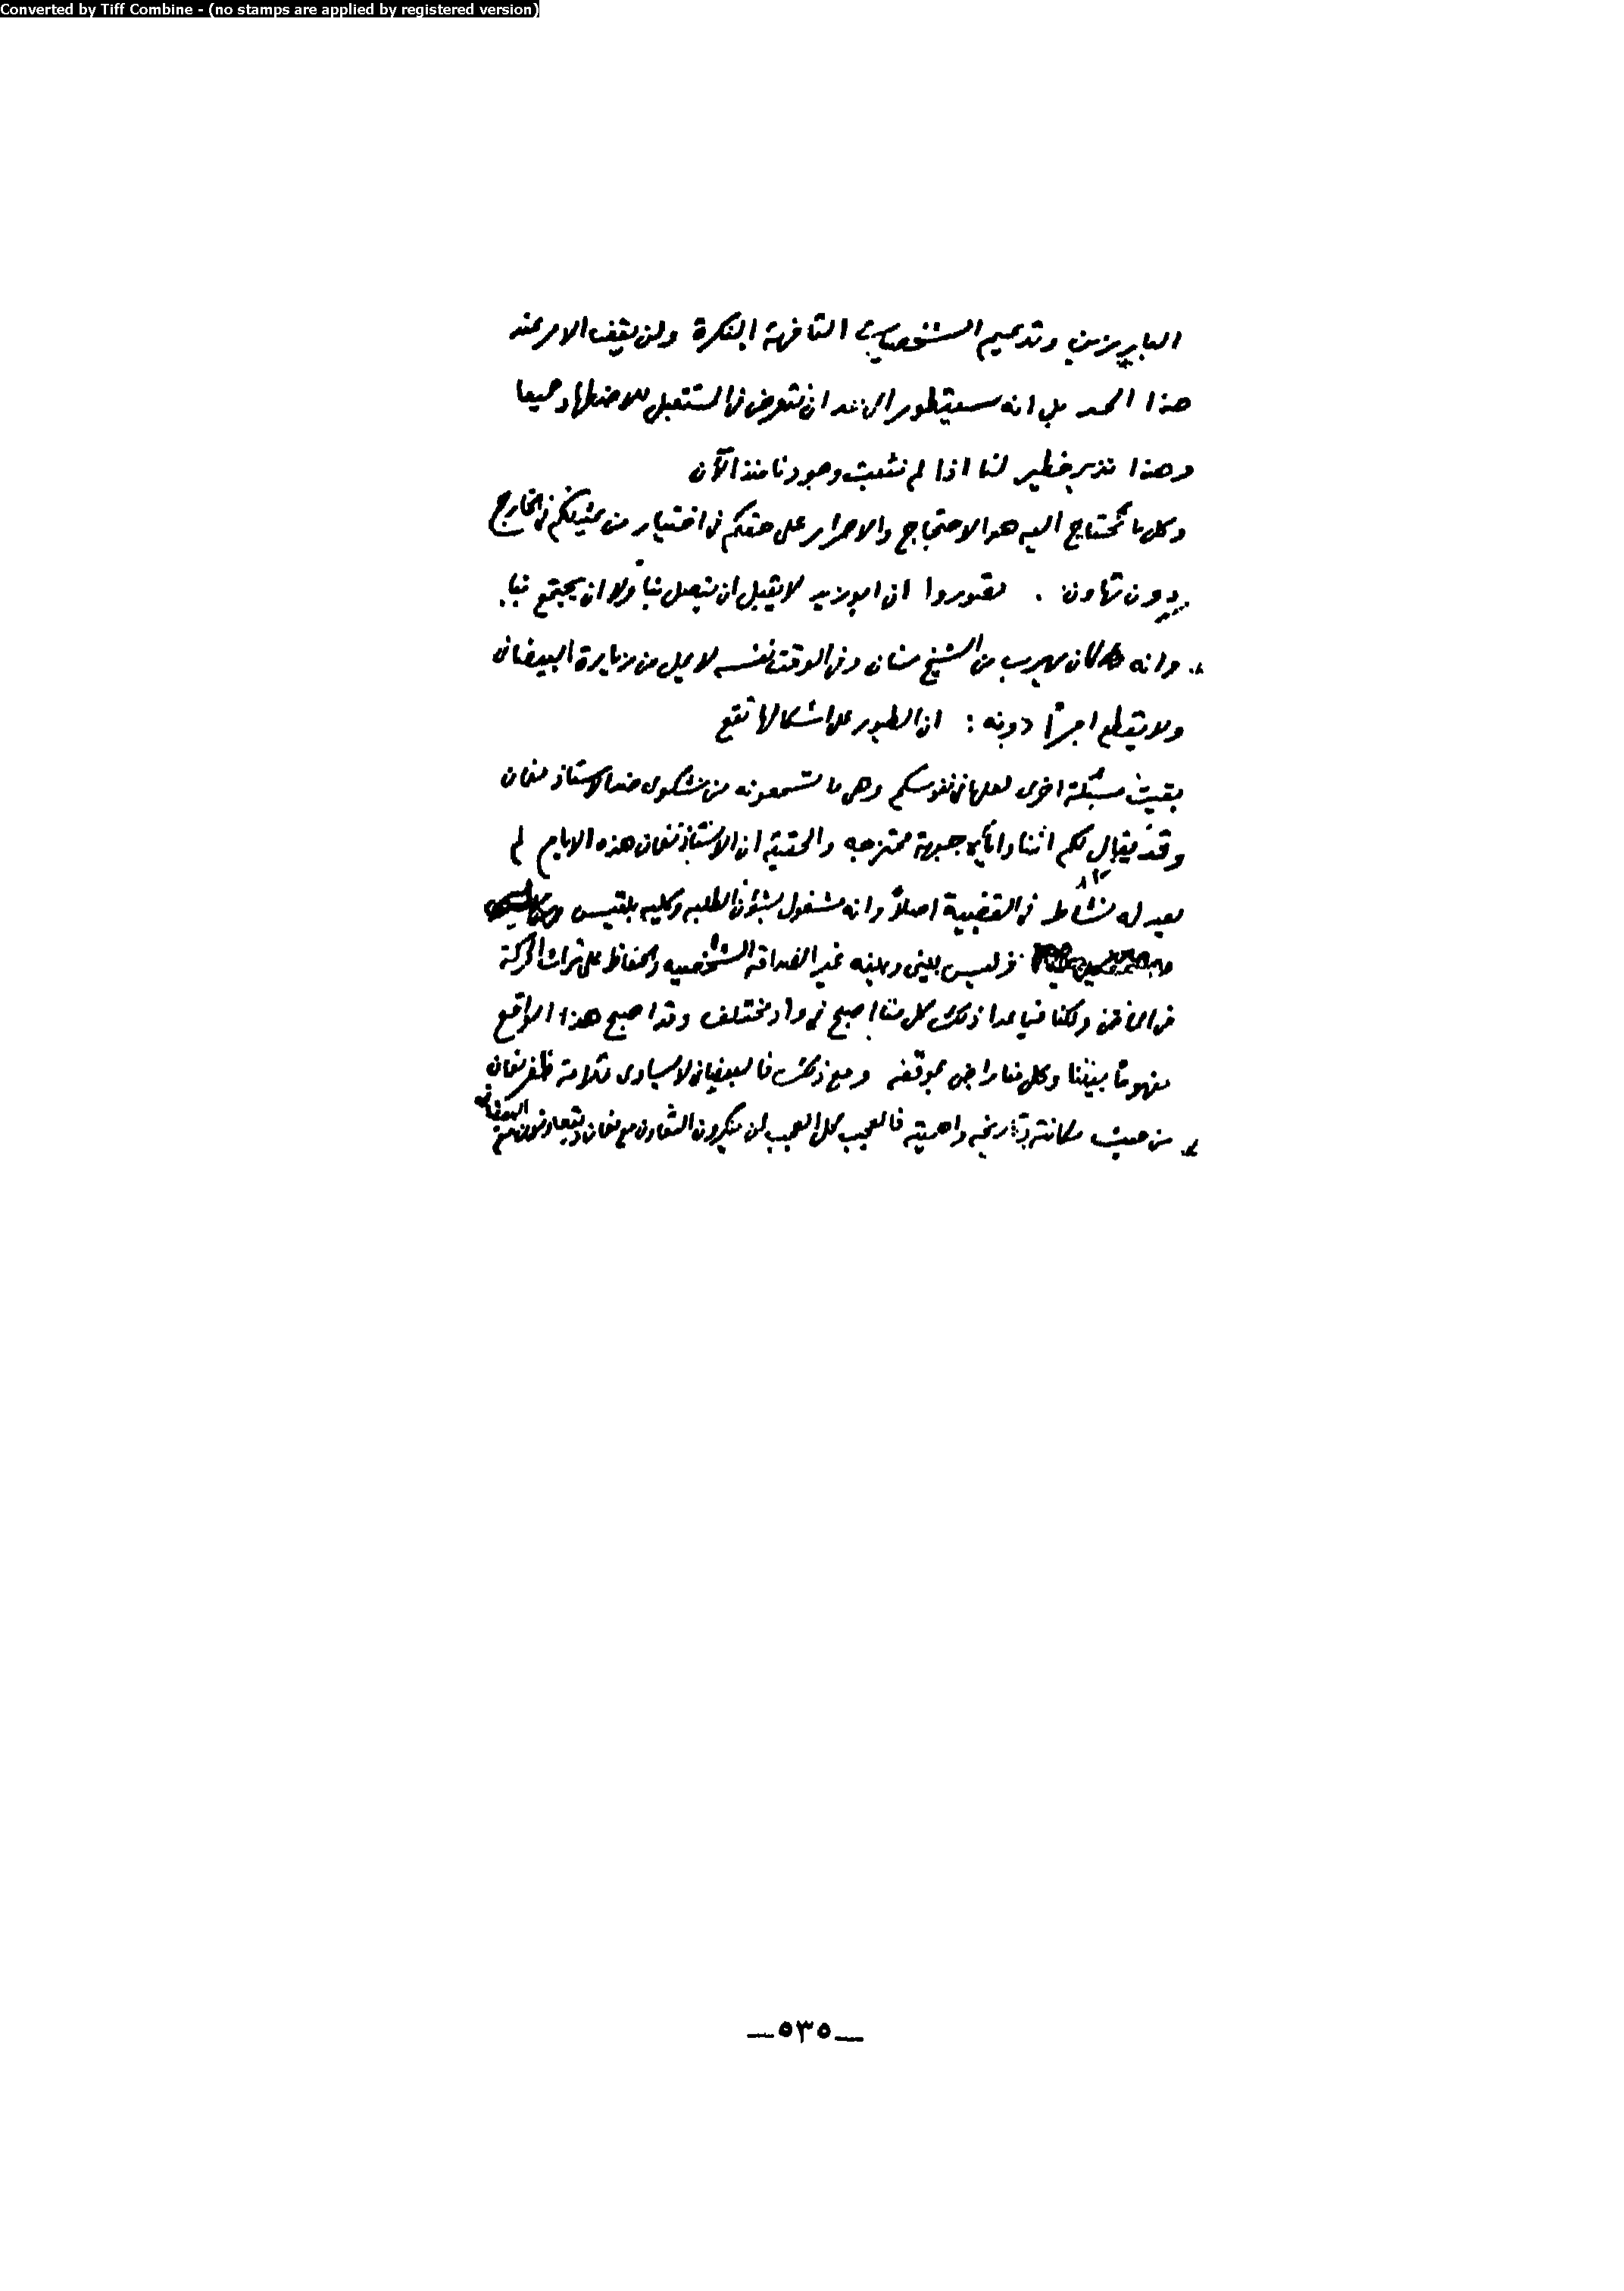 Converted by Tiff Combine - (no stamps are applied by registered version)
البارزين وتدعيم الشخصيات التافهة النكرة ولن يقف الامر عند
هذا الحد بل انه سيتطور الى حد ان نتعرض في المستقبل للاضطهاد جميعا
وهذا نذير خطير لنا اذا لم نثبت وجودنا منذ الآن
وكل ما نحتاج اليه هو الاحتجاج والاصرار على حقكم في اختيار من يمثلكم في الخارج
بدون تهاون . تصوروا ان ابو زيد لا يقبل ان يتصل بنا ولا ان يجتمع بنا
وانه كان يهرب من الشيخ سنان وفي الوقت نفسه لا يمل من زيارة البيضاني
ولا يقطع امراً دونه : ان الطيور على اشكالها تقع
بقيت مسئلة اخرى لعلها في نفوسكم وهي ما تسمعونه من شكوى ضد الاستاذ نعمان
وقد يقال لكم اننا واياه جبهة ممتزجه والحقيقة ان الاستاذ نعمان هذه الايام لم
يعد له نشاط في القضية اصلاً وانه مشغول بشؤون الطلبه وكليه بلقيس
فليس بيني وبينه غير الصداقه الشخصيه والحفاظ على تراث الحركة
في الماضي ولكنا فيما عدا ذلك كل منا اصبح في واد مختلف وقد اصبح هذا الواقع
مفهوماً بيننا وكل منا راض بموقفه ومع ذلك فالبيضاني لا يساوي قلامة ظفر نعمان
من حيث مكانته وتاريخه واهميته فالعجب كل العجب لمن ينكرون التعاون مع نعمان ويتعاونون مع البيضاني
—٥٣٥—